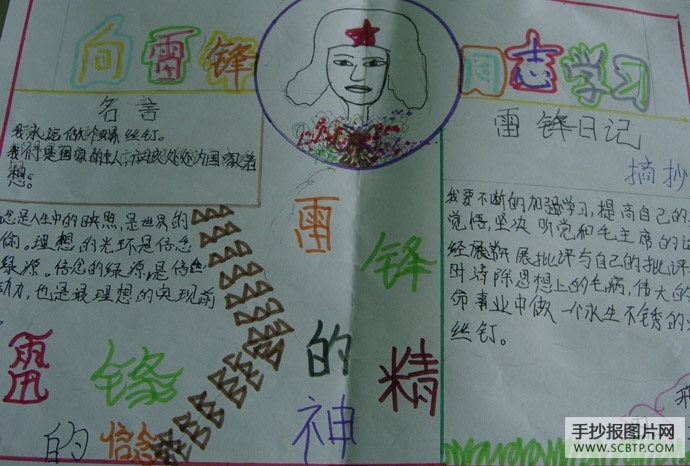 向雷锋同志学习
名言
我永远做个螺丝钉。
我们是国家的主人,应该处处为国家着
想。
念是人生中的映照,是世界的
你。理想的光环是信念
绿源。信念的绿源是信念
动力,也是最理想的实现前
雷锋
的信念
雷锋
的精
神
雷锋日记
摘抄
我要不断的加强学习,提高自己的
觉悟,坚决听党和毛主席的
经展开展批评与自己的批评
时清除思想上的毛病,伟大的
命事业中做一个永生不锈的
丝钉。
手抄报图片网
WWW.SCBTP.COM